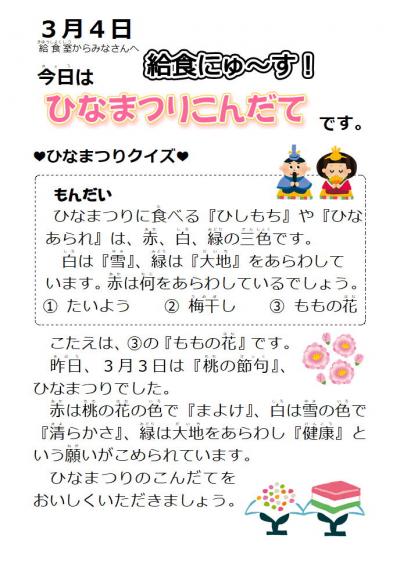 ３月４日
給食室からみなさんへ
給食にゅ～す！
今日は
ひなまつりこんだて
です。
♥ひなまつりクイズ♥
もんだい
ひなまつりに食べる『ひしもち』や『ひな
あられ』は、赤、白、緑の三色です。
白は『雪』、緑は『大地』をあらわして
います。赤は何をあらわしているでしょう。
① たいよう　② 梅干し　③ ももの花
こたえは、③の『ももの花』です。
昨日、３月３日は『桃の節句』、
ひなまつりでした。
赤は桃の花の色で『まよけ』、白は雪の色で
『清らかさ』、緑は大地をあらわし『健康』と
いう願いがこめられています。
ひなまつりのこんだてを
おいしくいただきましょう。